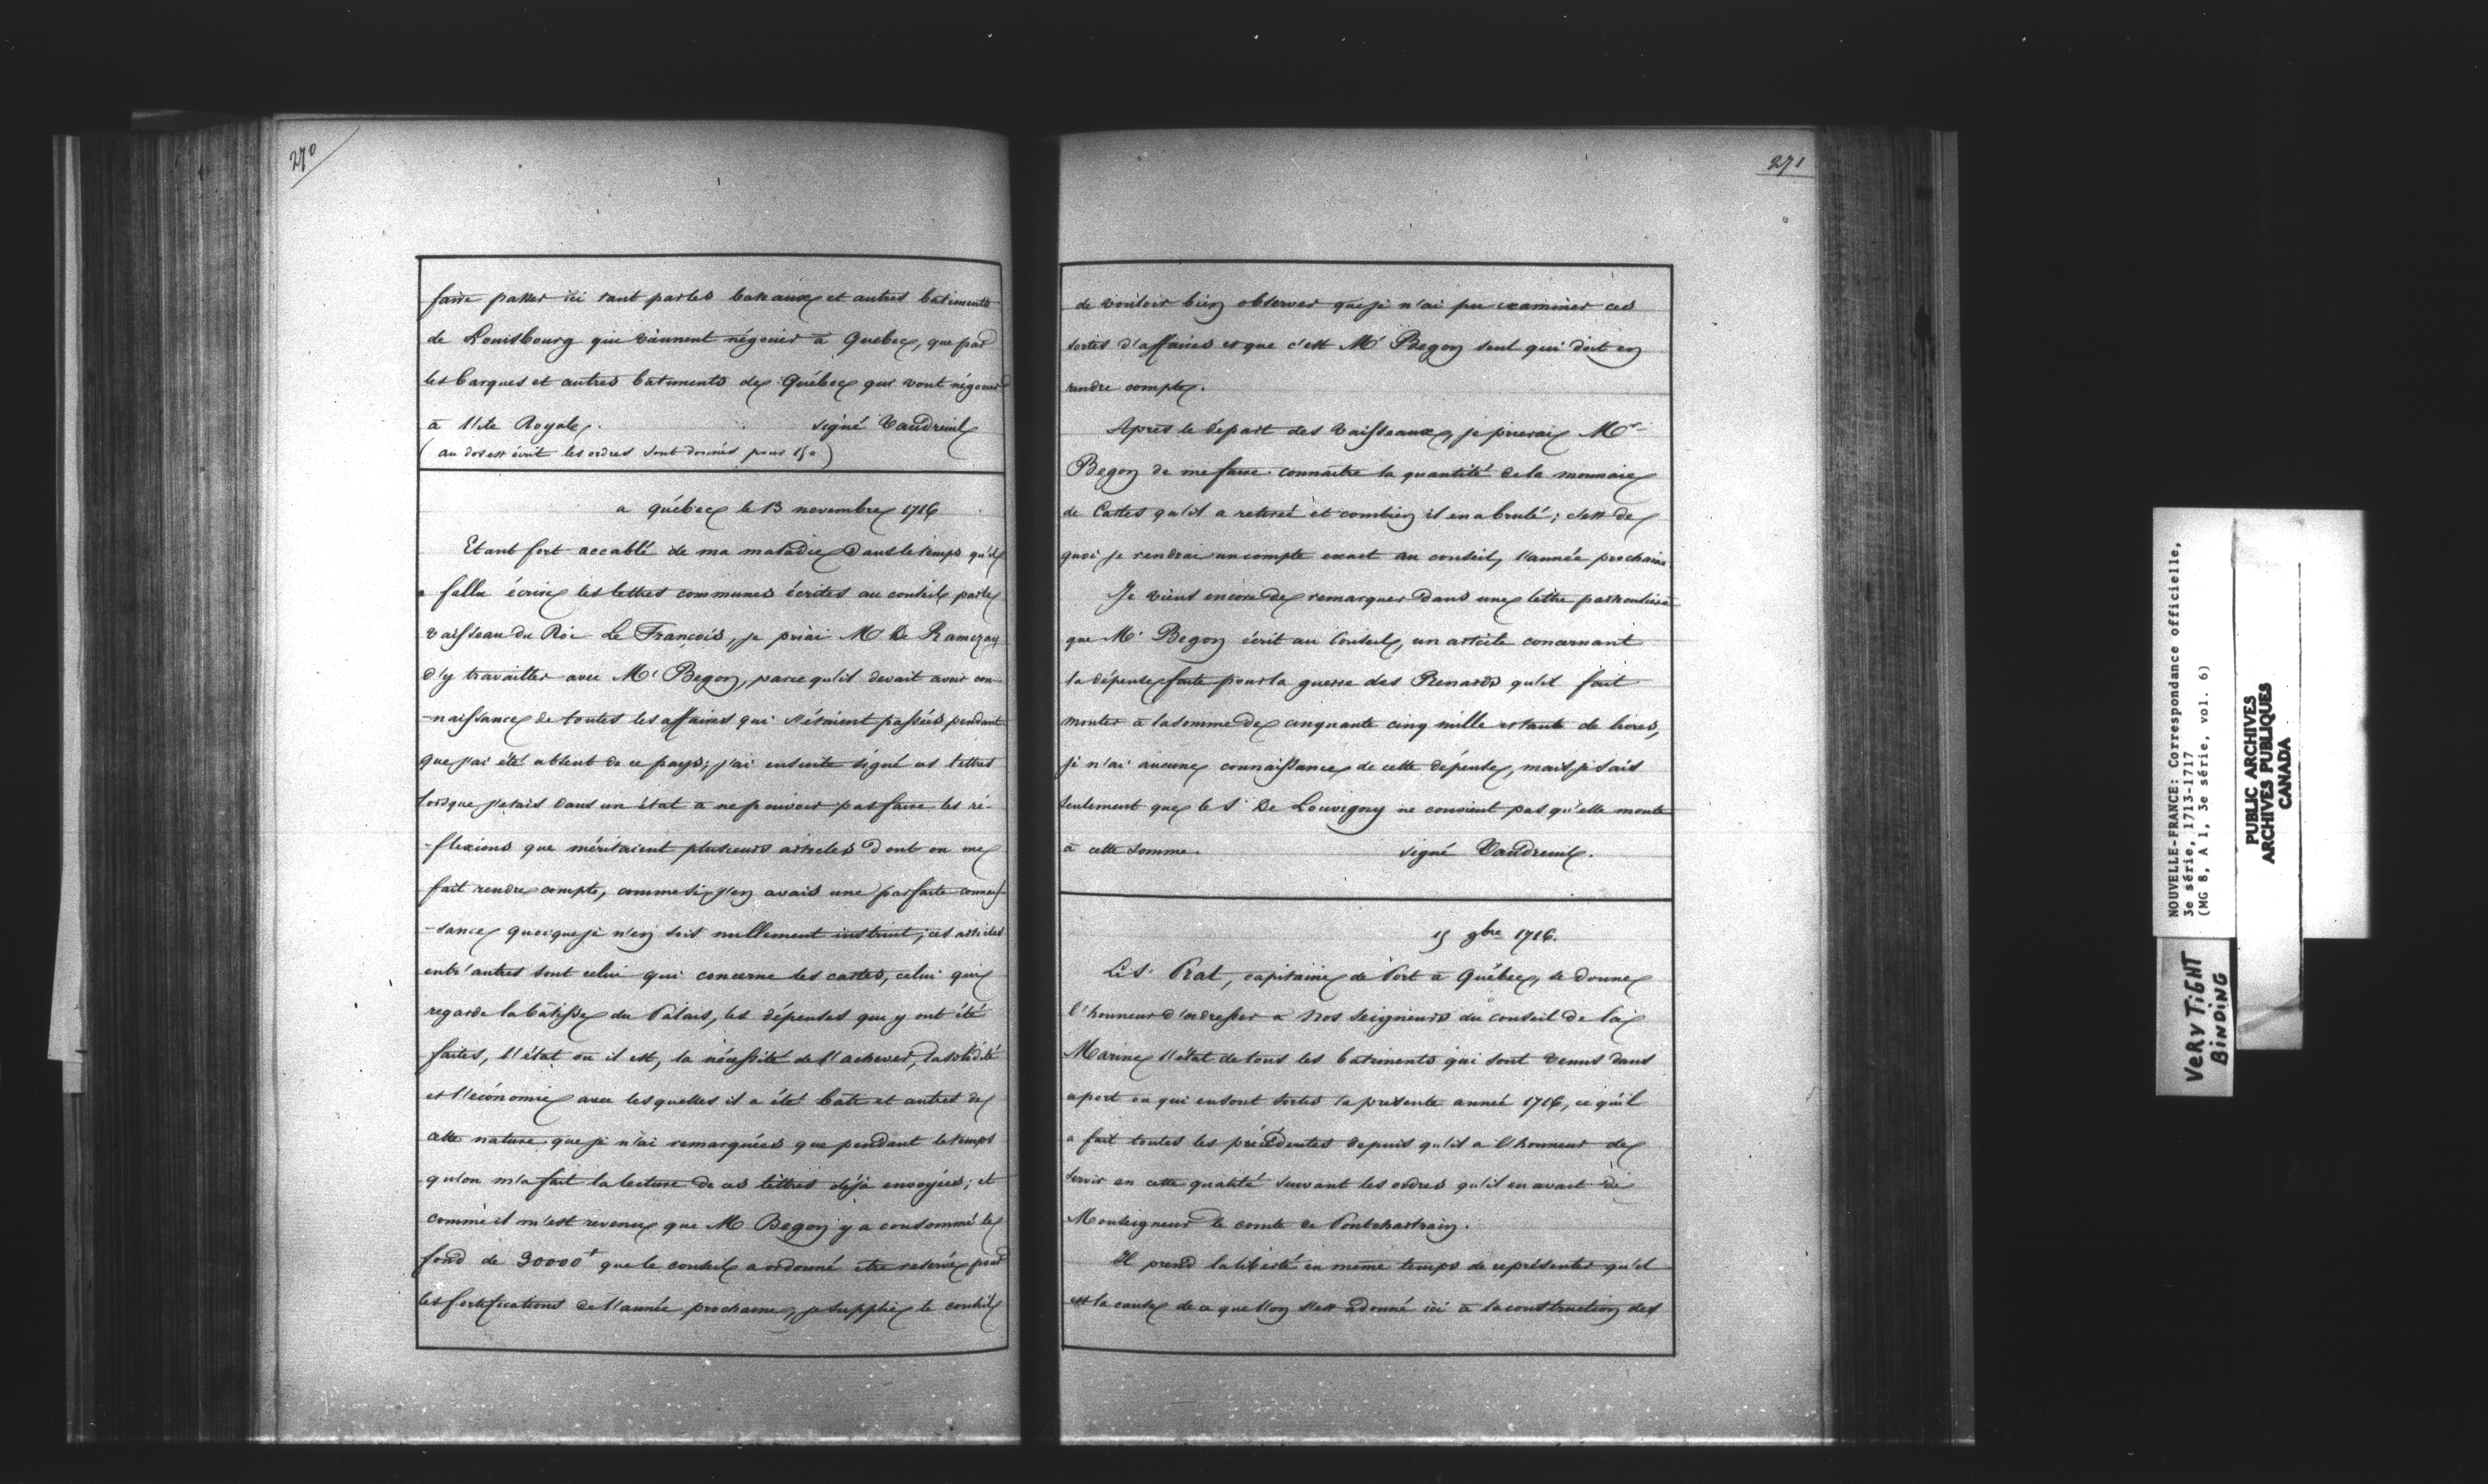 270
faire passer ici tant par les bateaux et autres bâtiments
de Louisbourg qui viennent négocier à Quebec, que par
les barques et autres bâtiments de Québec qui vont négocier
à l'ile Royale. signé Vaudreuil
(au dos est écrit les ordres sont donnés pour )
a québec le 13 novembre 1716
Etant fort accablé de ma maladie dans le temps qu'il
a fallu écrire les lettres communes écrites au conseil par le
vaisseau du Roi Le François, je priai Mr De Ramezay
d'y travailler avec Mr Begon, parce qu'il devait avoir con-
-naissance de toutes les affaires qui s'étaient passées pendant
que j'ai été absent de ce pays; j'ai ensuite signé ces lettres
lorsque j'etais dans un état à ne pouvoir pas faire les ré-
-flexions que méritaient plusieurs articles dont on me
fait rendre compte, comme si j'en avais une parfaite connais-
-sance quoique je n'en sois nullement instruit; ces articles
entr'autres sont celui qui concerne les cartes, celui qui
regarde la bâtisse du Palais, les dépenses que y ont été
faites, l'état où il est, la nécessité de l'achever, la solidité
et l'économie avec lesquelles il a été bâti et autres de
cette nature que je n'ai remarquées que pendant le temps
qu'on m'a fait la lecture de ces lettres déjà envoyées; et
comme il m'est revenu que M Begon y a consommé le
fond de 30000+ que le conseil a ordonné être reservé pour
les fortifications de l'année prochaine, je supplie le conseil
271
de vouloir bien observer que je n'ai pu examiner ces
sortes d'affaires et que c'est Mr Begon seul qui doit en
rendre compte.
Après le départ des vaisseaux, je prierai Mr
Begon de me faire connaître la quantité de la monnaie
de Cartes qu'il a retiré et combien il en a brulé; c'est de
quoi je rendrai un compte exact au conseil, l'année prochaine
Je viens encore de remarquer dans une lettre particulière
que Mr Begon écrit au Conseil, un article concernant
la dépense faite pour la guerre des Renards qu'il fait
monter à la somme de cinquante cinq mille et tant de livres,
je n'ai aucune connaissance de cette dépense, mais je sais
seulement que le Sr De Louvigny ne convient pas qu'elle monte
à cette somme. signé Vaudreuil.
15 9bre 1716.
Le Sr Prat, capitaine de Port à Québec, se donne
l'honneur d'adresser à Nos Seigneurs du conseil de la
Marine l'état de tous les bâtiments qui sont venus dans
ce port ou qui en sont sortis la présente année 1716, ce qu'il
a fait toutes les précédentes depuis qu'il a l'honneur de
servir en cette qualité suivant les ordres qu'il en avait de
Monseigneur le comte de Pontchartrain.
Il prend la liberté en même temps de représenter qu'il
est la cause de ce que l'on s'est adonné ici à la construction des
NOUVELLE-FRANCE: Correspondance officielle,
3e série, 1713-1717
(MG 8, A 1, 3e série, vol. 6)
PUBLIC ARCHIVES
ARCHIVES PUBLIQUES
CANADA
VERY TIGHT
BINDING